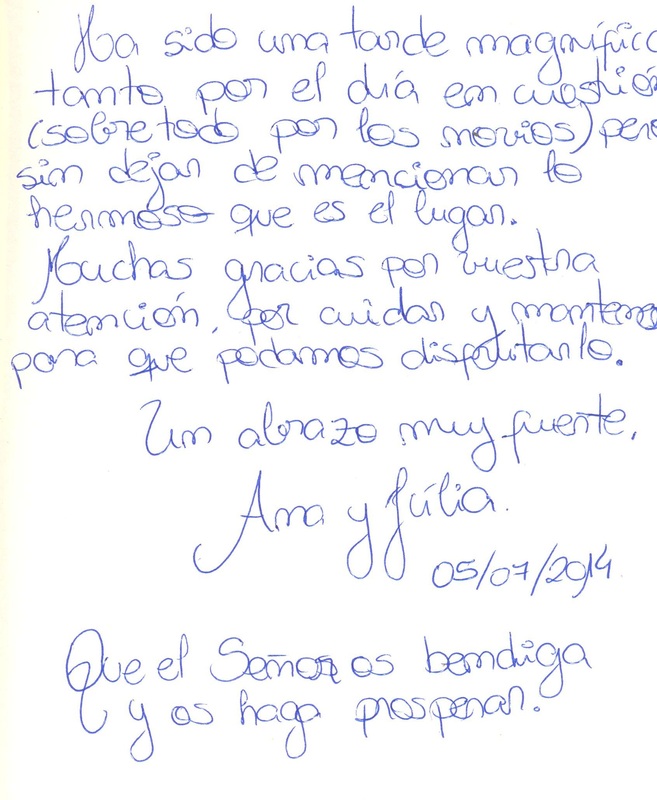 Ha sido una tarde magnífic
tanto por el día en cuestión
(sobretodo por los novios) pero
sin dejar de mencionar lo
hermoso que es el lugar.
Muchas gracias por vuestra
atención, por cuidar y mantener
para que podamos disfrutarlo.
Un abrazo muy fuerte,
Ana y Júlia.
05/07/2014
Que el Señor os bendiga
y os haga prosperar.